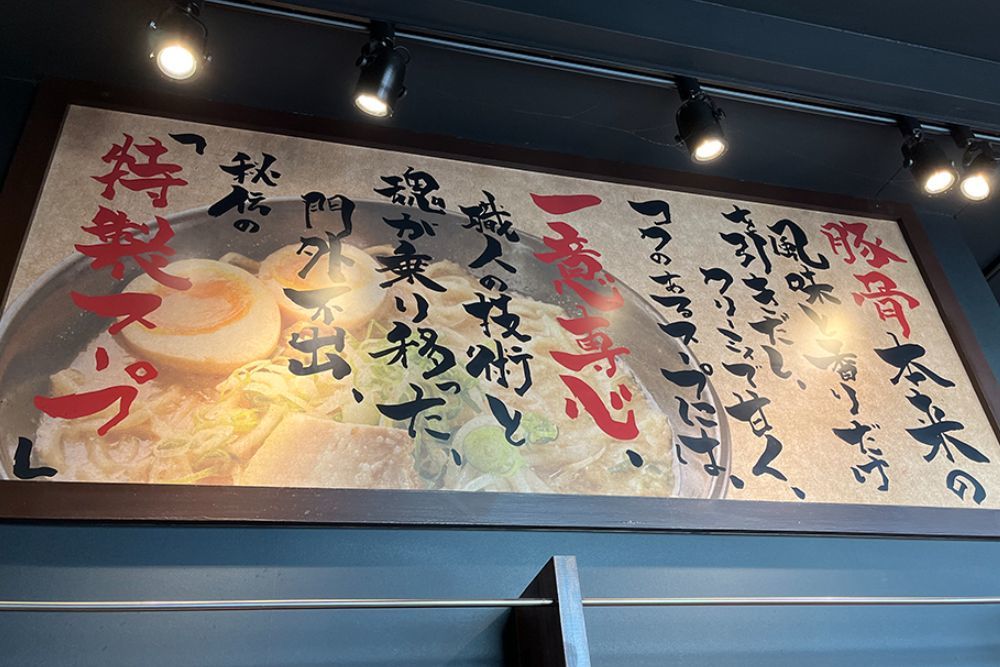 豚骨本来の
風味と香りだけ
を引きだし、
クリーミーで甘く、
コクのあるスープには、
一意専心、
職人の技術と
魂が乗り移った、
門外不出、
秘伝の
「特製スープ」